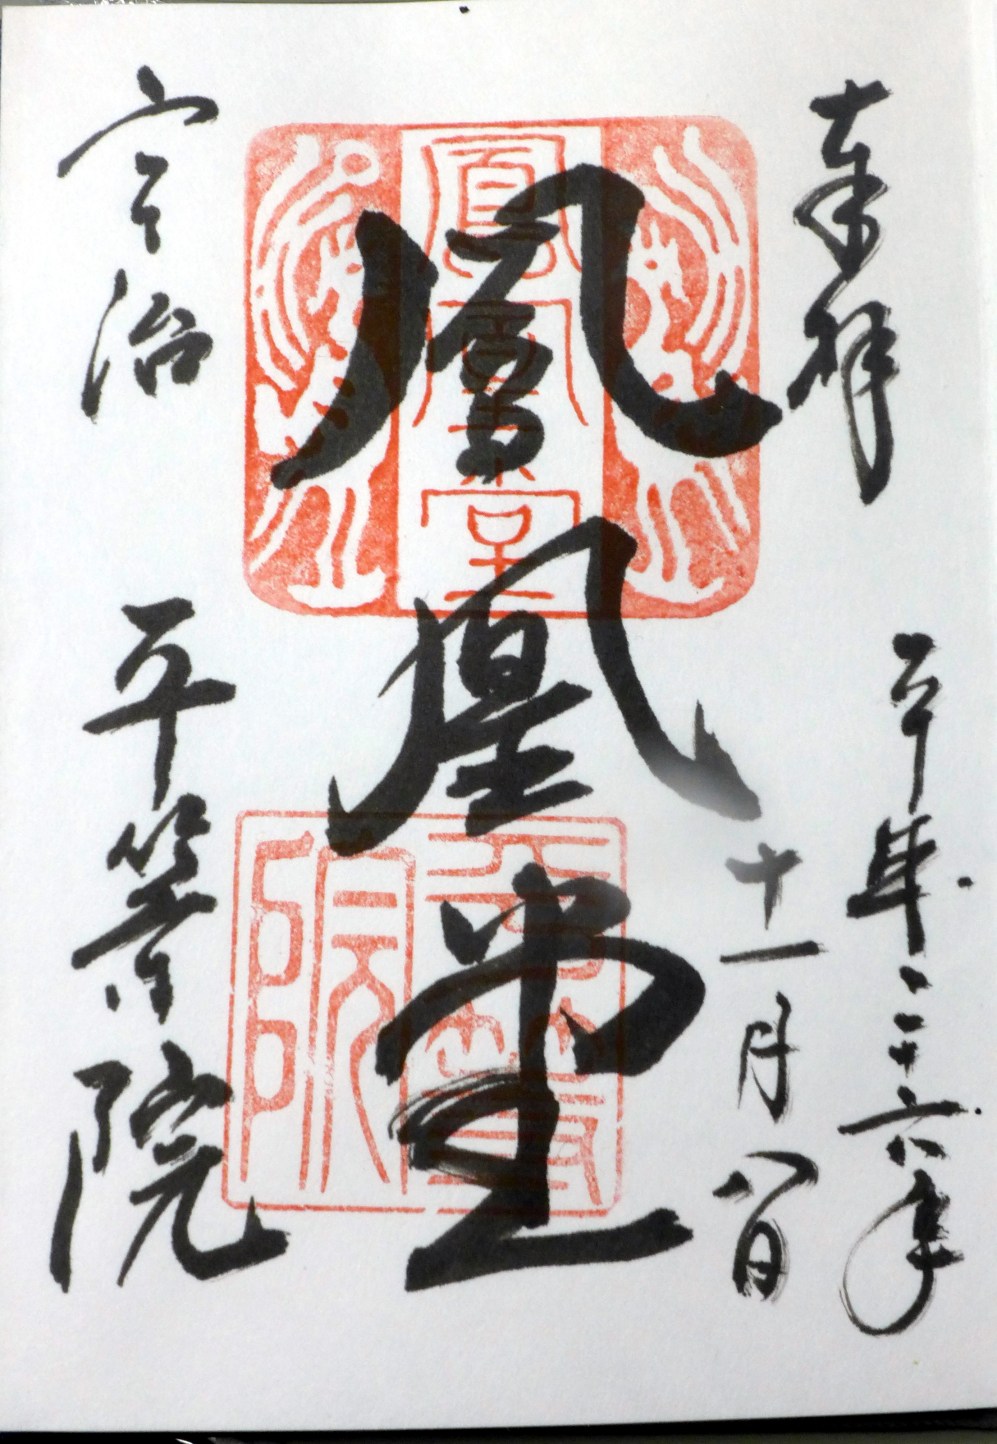 奉拝
平成二十六年
十一月八日
鳳凰堂
宇治
平等院
鳳凰堂
平等院